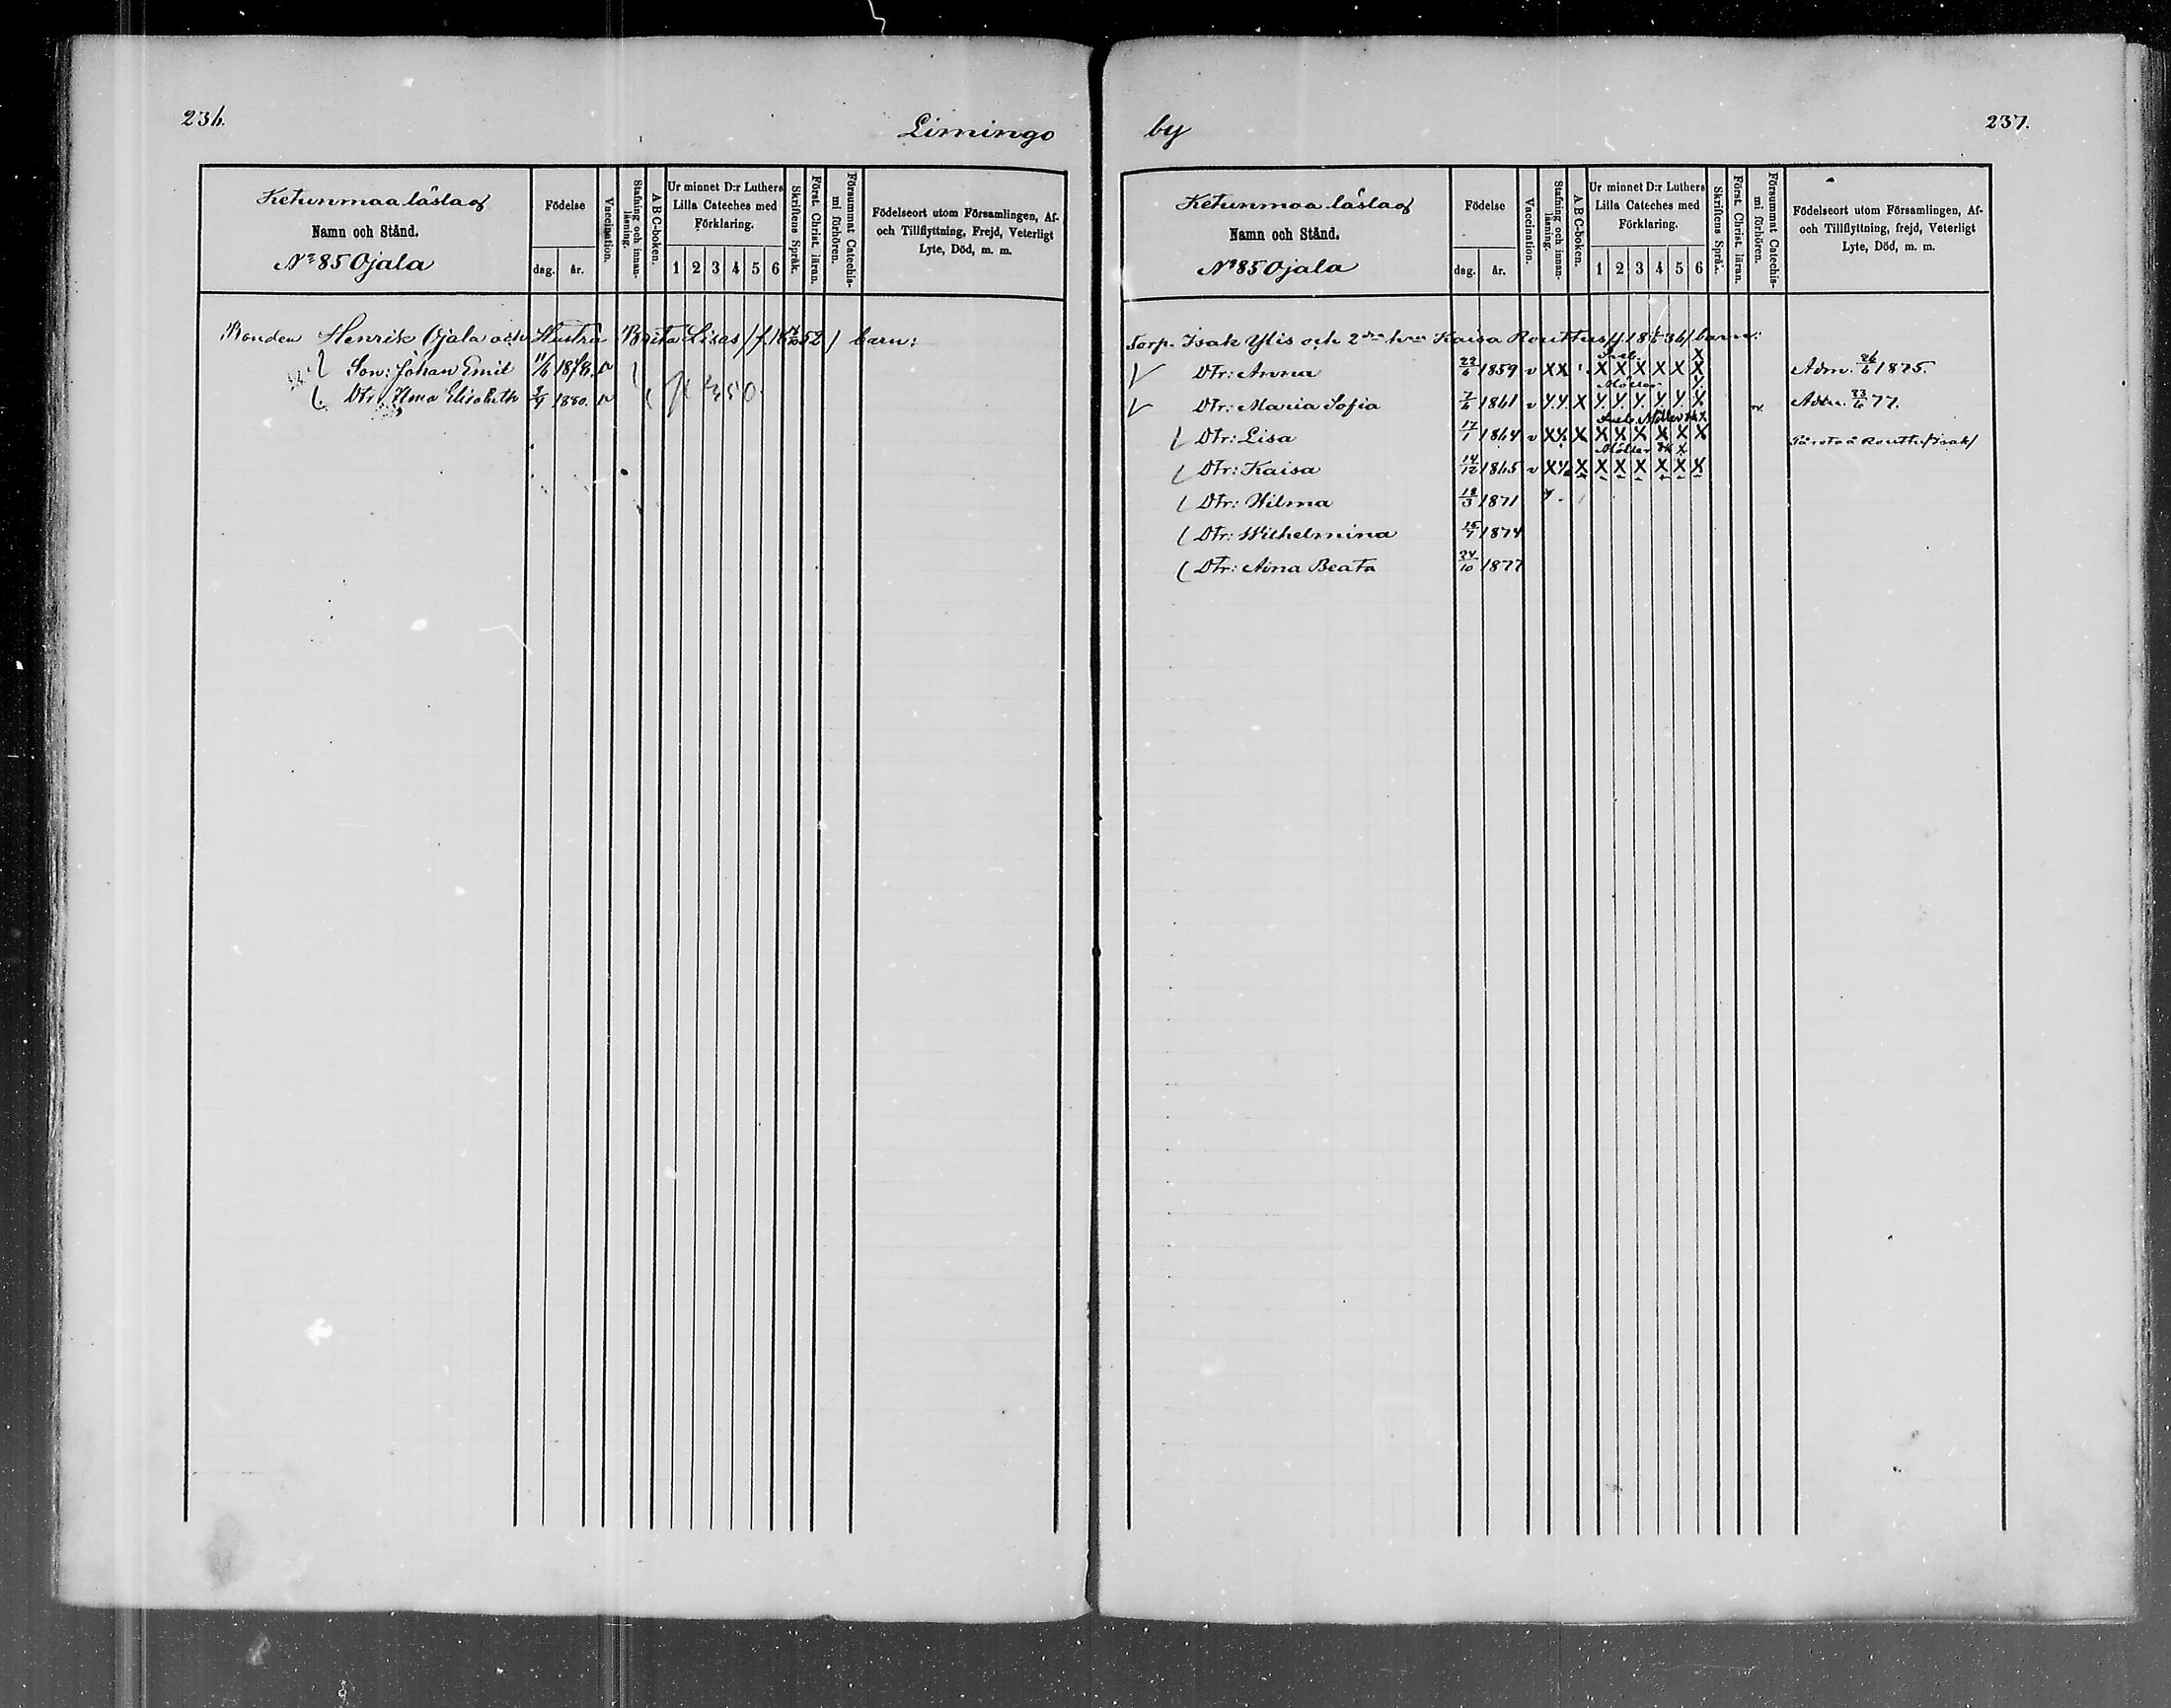 236.
Limingo
Ketunmaa läslag
Namn och Stånd.
No 85 Ojala
Födelse
dag. år.
Vaccination.
Stafning och innan-
läsning.
A B C-boken.
Ur minnet D:r Luthers
Lilla Cateches med
Förklaring.
1 2 3 4 5 6
Skriftens Språk.
Först. Christ. läran.
Försummat Catechis-
mi förhören.
Födelseort utom Församlingen, Af-
och Tillflyttning, Frejd, Veterligt
Lyte, Död, m. m.
Bonden Henrik Ojala och Hustru Brita Lisas barn:
Son: Johan Emil 11/6 1878. v
Dtr: Elisabeth 1880. v
by
237.
Ketunmaa läslag
Namn och Stånd.
No 85 Ojala
Födelse
dag. år.
Vaccination.
Stafning och innan-
läsning.
A B C-boken.
Ur minnet D:r Luthers
Lilla Cateches med
Förklaring.
1 2 3 4 5 6
Skriftens Språk.
Först. Christ. läran.
Försummat Catechis-
mi förhören.
Födelseort utom Församlingen, Af-
och Tillflyttning, frejd, Veterligt
Lyte, Död, m. m.
Torp. Isak Ylis och 2dra hus Kaisa Routtus barn:
Dtr: Anna 22/6 1859 v X X X X X X X X Adm. 26/6 1875.
Dtr: Maria Sofia 7/6 1861 v Adm. 23/6 77.
Dtr: Lisa 17/1 1864 v X X X X X X X
Dtr: Kaisa 14/12 1865 v X X X X X X X
Dtr: Hilma 18/3 1871
Dtr: Wilhelmina 15/7 1874
Dtr: Aina Beata 24/10 1877